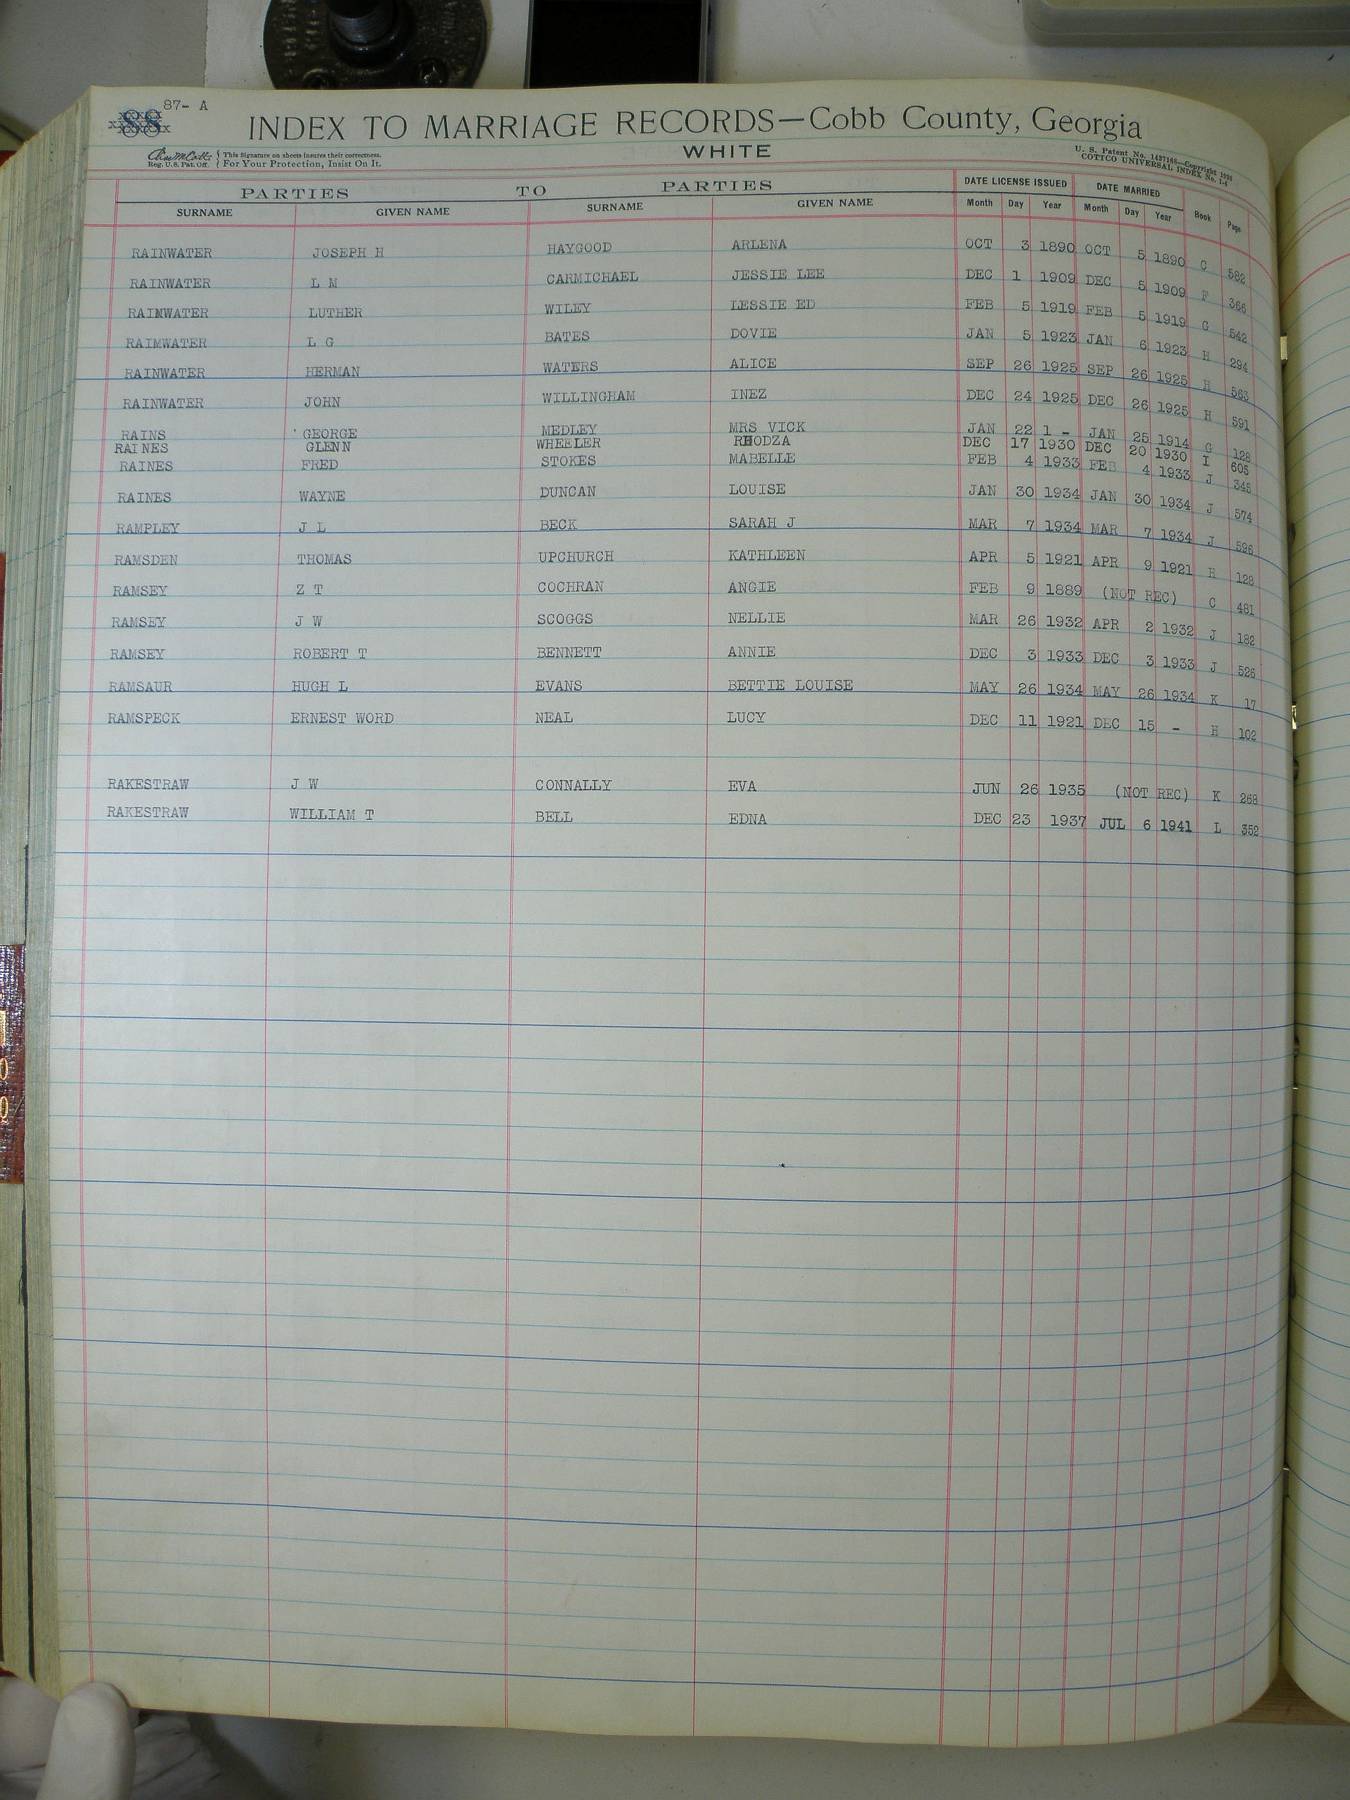 87- A
88
INDEX TO MARRIAGE RECORDS—Cobb County, Georgia
WHITE
Reg. U.S. Pat. Off. { This Signature on sheets insures their correctness.
For Your Protection, Insist On It.
U. S. Patent No. Copyright
COTTCO UNIVERSAL INDEX No.
PARTIES TO PARTIES DATE LICENSE ISSUED DATE MARRIED
SURNAME GIVEN NAME SURNAME GIVEN NAME Month Day Year Month Day Year Book Page
RAINWATER JOSEPH H HAYGOOD ARLENA OCT 3 1890 OCT 5 1890 C 582
RAINWATER L M CARMICHAEL JESSIE LEE DEC 1 1909 DEC 5 1909 F 366
RAINWATER LUTHER WILEY LESSIE ED FEB 5 1919 FEB 5 1919 G 542
RAINWATER L G BATES DOVIE JAN 5 1923 JAN 6 1923 H 294
RAINWATER HERMAN WATERS ALICE SEP 26 1925 SEP 26 1925 H 563
RAINWATER JOHN WILLINGHAM INEZ DEC 24 1925 DEC 26 1925 H 591
RAINS GEORGE MEDLEY MRS VICK JAN 22 1 - JAN 25 1914 G 128
RAINES GLENN WHEELER RHODZA DEC 17 1930 DEC 20 1930 I 605
RAINES FRED STOKES MABELLE FEB 4 1933 FEB 4 1933 J 345
RAINES WAYNE DUNCAN LOUISE JAN 30 1934 JAN 30 1934 J 574
RAMPLEY J L BECK SARAH J MAR 7 1934 MAR 7 1934 J 596
RAMSDEN THOMAS UPCHURCH KATHLEEN APR 5 1921 APR 9 1921 H 128
RAMSEY Z T COCHRAN ANGIE FEB 9 1889 (NOT REC) C 481
RAMSEY J W SCOGGS NELLIE MAR 26 1932 APR 2 1932 J 182
RAMSEY ROBERT T BENNETT ANNIE DEC 3 1933 DEC 3 1933 J 526
RAMSAUR HUGH L EVANS BETTIE LOUISE MAY 26 1934 MAY 26 1934 K 17
RAMSPECK ERNEST WORD NEAL LUCY DEC 11 1921 DEC 15 - H 102
RAKESTRAW J W CONNALLY EVA JUN 26 1935 (NOT REC) K 268
RAKESTRAW WILLIAM T BELL EDNA DEC 23 1937 JUL 6 1941 L 352